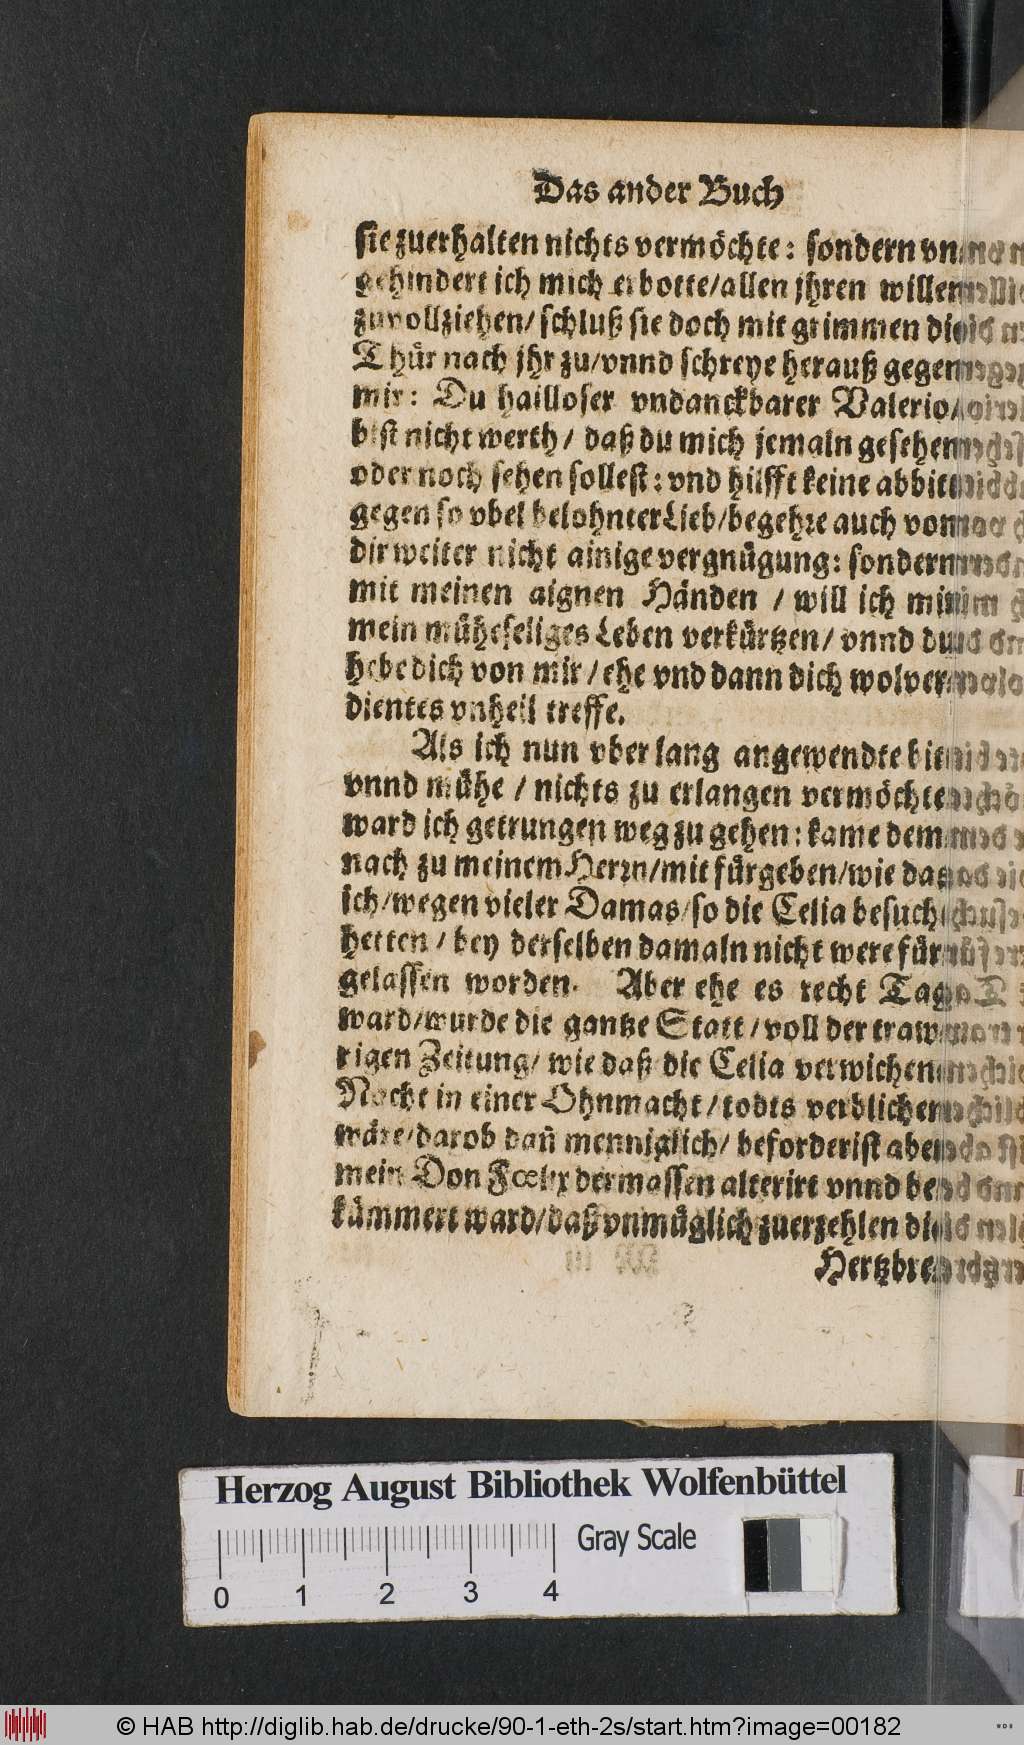 Das ander Buch
sie zuerhalten nichts vermöchte: sondern vn-
gehindert ich mich erbotte/allen jhren willen
zuvollziehen/ schluß sie doch mit grimmen die
Thür nach jhr zu/vnnd schreye herauß gegen
mir: Du hailloser vndanckbarer Valerio/
bist nicht werth/ daß du mich jemaln gesehen
oder noch sehen sollest: vnd hilfft keine abbitt
gegen so vbel belohnter Lieb/begehre auch von
dir weiter nicht ainige vergnügung: sondern
mit meinen aignen Händen / will ich mir
mein müheseliges Leben verkürtzen/ vnnd du
hebe dich von mir / ehe vnd dann dich wolver-
dientes vnheil treffe.
Als ich nun vber lang angewendte bitt
vnnd mühe / nichts zu erlangen vermöchte
ward ich getrungen weg zu gehen: kame dem-
nach zu meinem Herrn/mit fürgeben/wie das
ich/wegen vieler Damas/so die Celia besucht
hetten / bey derselben damaln nicht were für-
gelassen worden. Aber ehe es recht Tag
ward/wurde die gantze Statt / voll der traw-
rigen Zeitung/ wie daß die Celia verwichen
Nacht in einer Ohnmacht / todts verblichen
wäre/darob dañ menniglich/ beforderist aber
mein Don Fœlix dermassen alterirt vnnd be-
kümmert ward/daß vnmüglich zuerzehlen die
Hertzbre-
Herzog August Bibliothek Wolfenbüttel
Gray Scale
0 1 2 3 4
© HAB http://diglib.hab.de/drucke/90-1-eth-2s/start.htm?image=00182